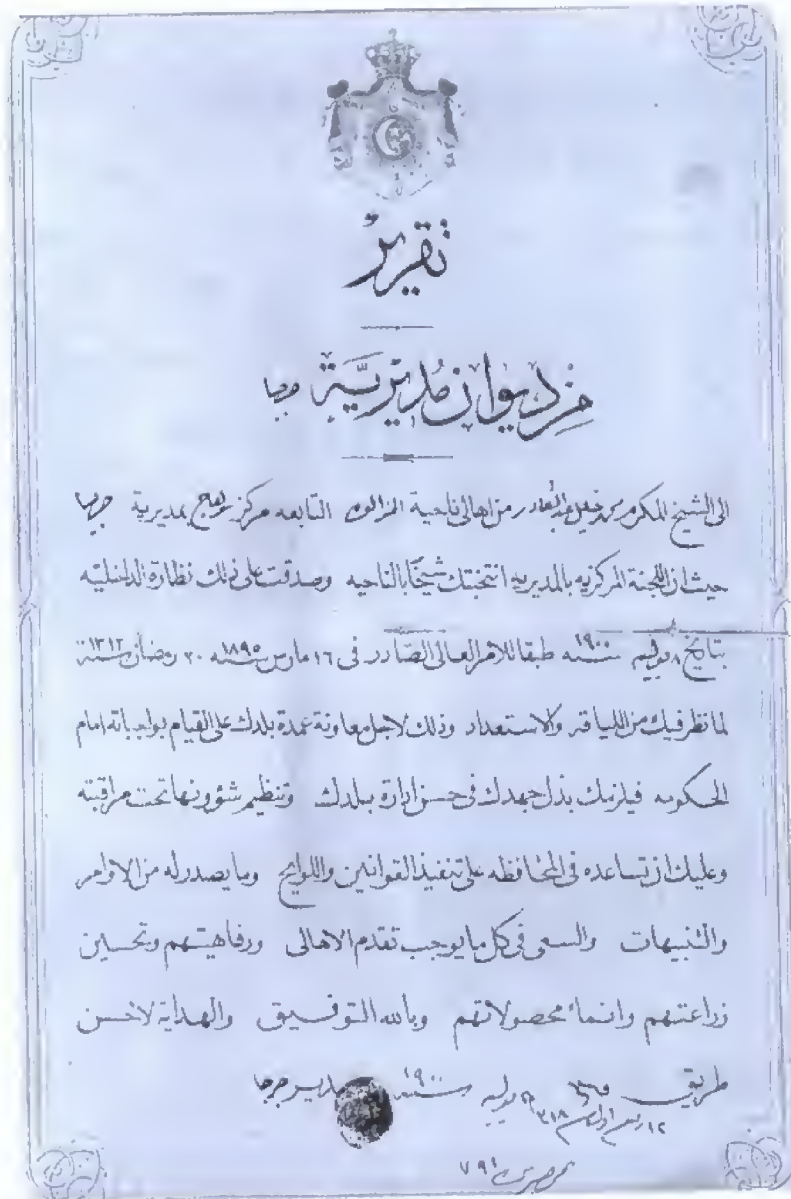 تقرير
من ديوان مديرية جرجا
الى الشيخ المكرم عبدالقادر من اهالى ناحية التابعه مركز سوهاج بمديرية جرجا
حيث ان اللجنة المركزيه بالمديريه انتخبتك شيخًا بالناحيه وصدقت على ذلك نظارة الداخليه
بتاريخ ٨ يوليه سنه ١٩٠٠ طبقا للامر العالى الصادر فى ١٦ مارس سنه ١٨٩٥ ٢٠ رمضان سنة ١٣١٢
لما نظر فيك من اللياقه والاستعداد وذلك لاجل معاونة عمدة بلدك على القيام بواجباته امام
الحكومه فيلزمك بذل جهدك فى حسن ادارة بلدك وتنظيم شؤونها تحت مراقبته
وعليك ان تساعده فى المحافظه على تنفيذ القوانين واللوايح وما يصدر له من الاوامر
والتنبيهات والسعى فى كل ما يوجب تقدم الاهالى ورفاهيتهم وتحسين
زراعتهم وانماء محصولاتهم وبالله التوفيق والهداية لاحسن
طريق يوليه سنة ١٩٠٠ مدير جرجا
١٢ ربيع اول ١٣١٨
٧٩١